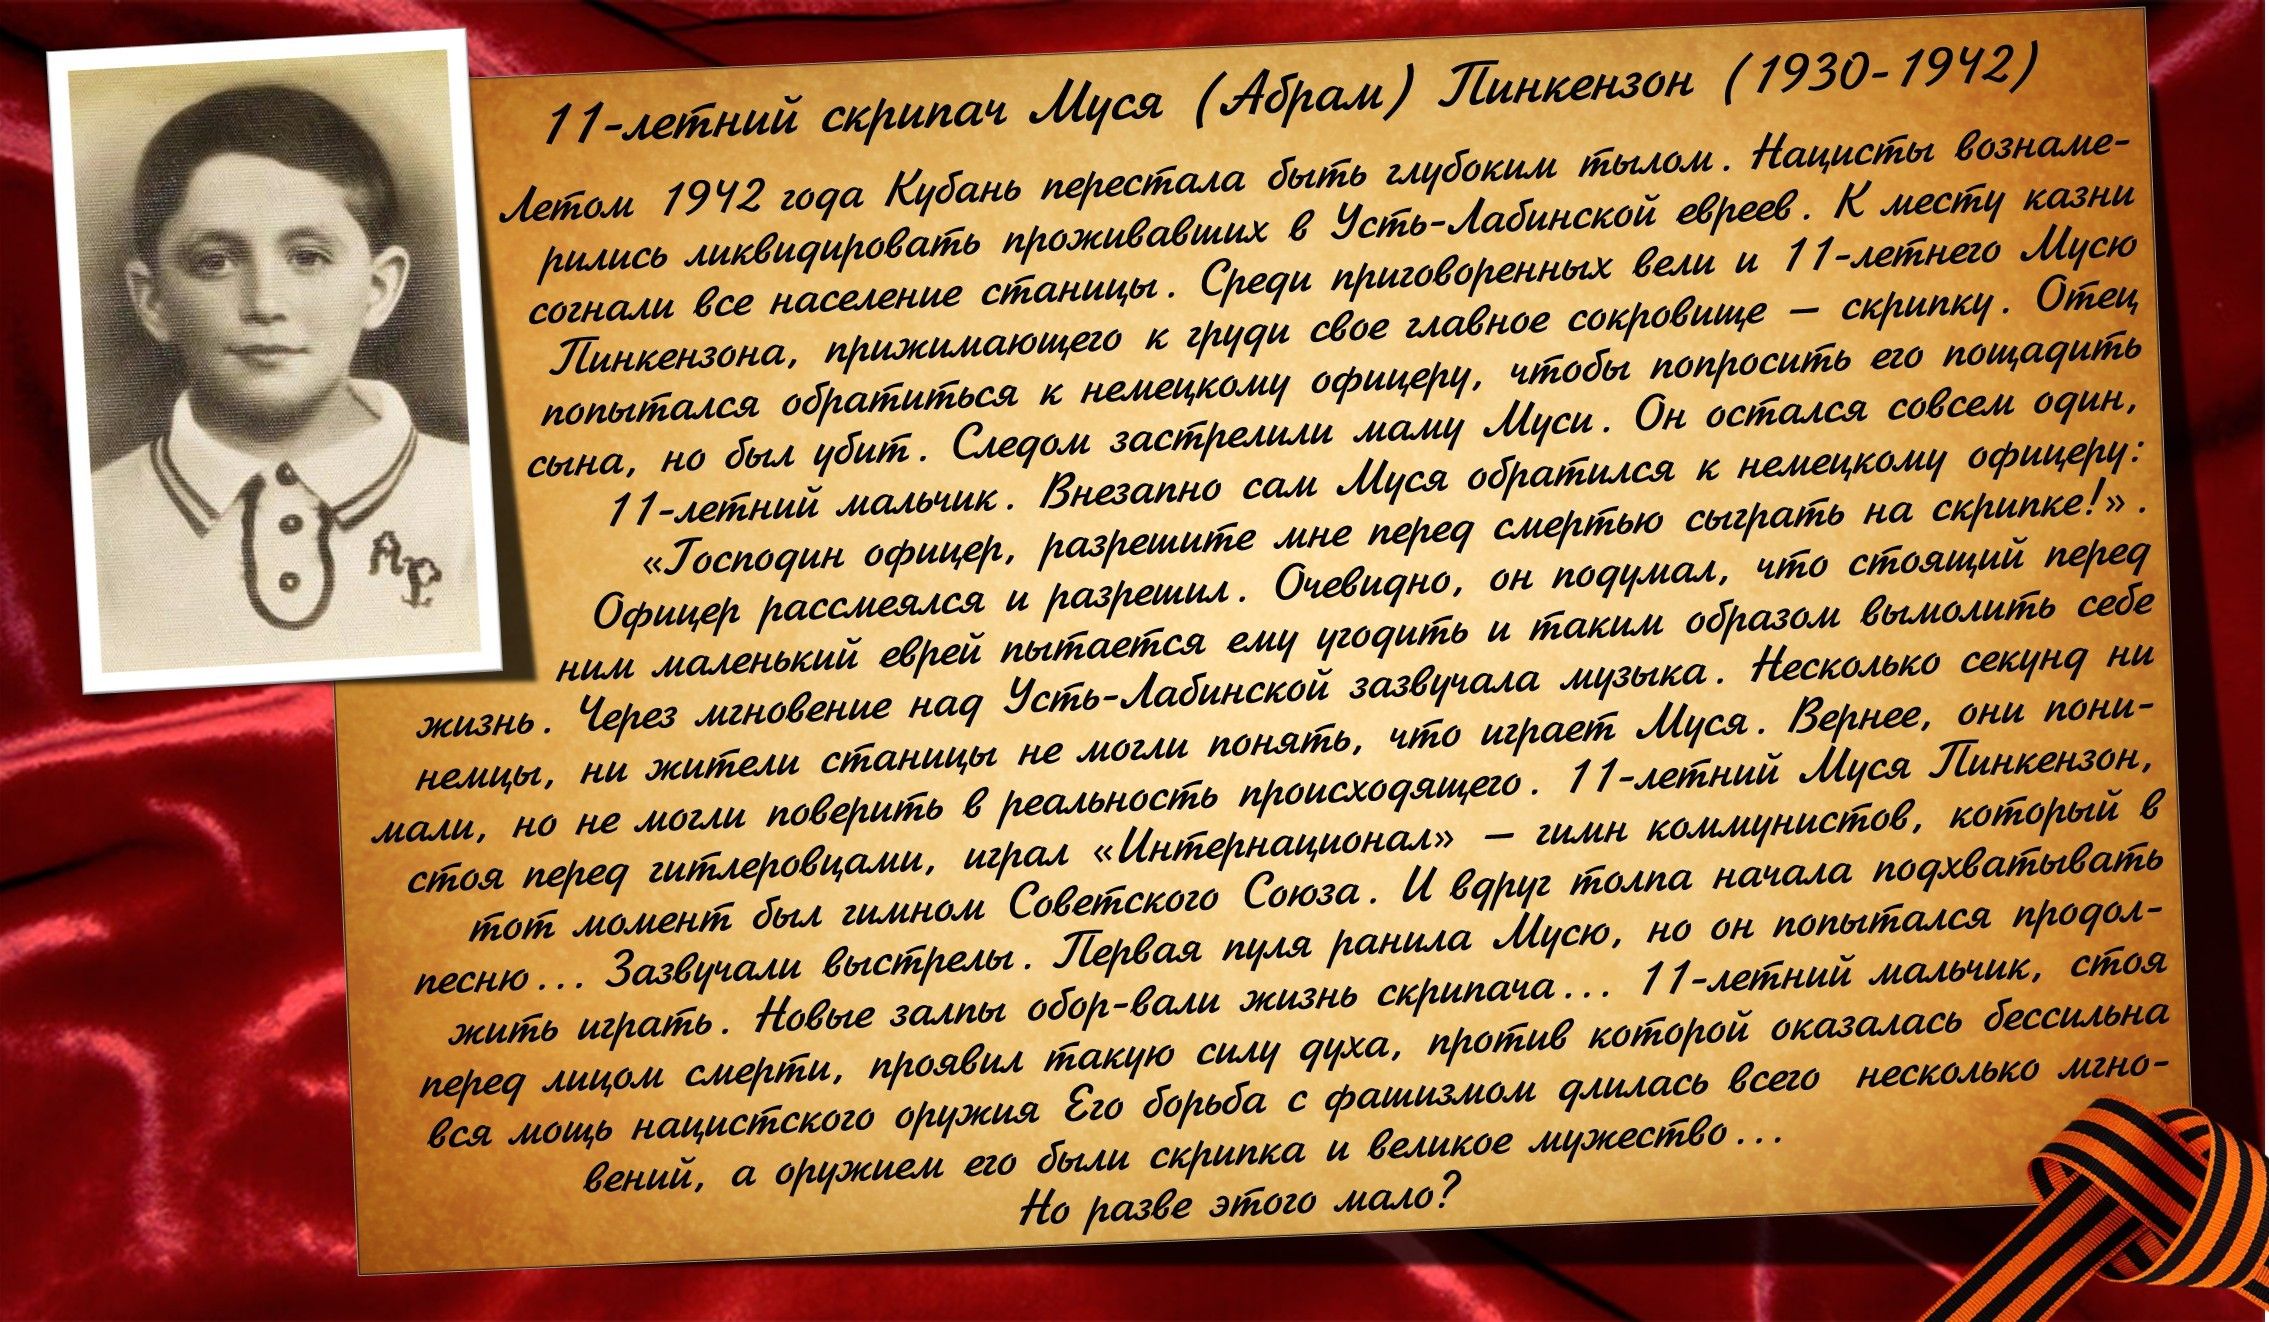 11-летний скрипач Муся (Абрам) Пинкензон (1930-1942)
Летом 1942 года Кубань перестала быть глубоким тылом. Нацисты вознаме-
рились ликвидировать проживавших в Усть-Лабинской евреев. К месту казни
согнали все население станицы. Среди приговоренных вели и 11-летнего Мусю
Пинкензона, прижимающего к груди свое главное сокровище – скрипку. Отец
попытался обратиться к немецкому офицеру, чтобы попросить его пощадить
сына, но был убит. Следом застрелили маму Муси. Он остался совсем один,
11-летний мальчик. Внезапно сам Муся обратился к немецкому офицеру:
«Господин офицер, разрешите мне перед смертью сыграть на скрипке!».
Офицер рассмеялся и разрешил. Очевидно, он подумал, что стоящий перед
ним маленький еврей пытается ему угодить и таким образом вымолить себе
жизнь. Через мгновение над Усть-Лабинской зазвучала музыка. Несколько секунд ни
немцы, ни жители станицы не могли понять, что играет Муся. Вернее, они пони-
мали, но не могли поверить в реальность происходящего. 11-летний Муся Пинкензон,
стоя перед гитлеровцами, играл «Интернационал» – гимн коммунистов, который в
тот момент был гимном Советского Союза. И вдруг толпа начала подхватывать
песню... Зазвучали выстрелы. Первая пуля ранила Мусю, но он попытался продол-
жить играть. Новые залпы обор-вали жизнь скрипача... 11-летний мальчик, стоя
перед лицом смерти, проявил такую силу духа, против которой оказалась бессильна
вся мощь нацистского оружия Его борьба с фашизмом длилась всего несколько мгно-
вений, а оружием его были скрипка и великое мужество...
Но разве этого мало?
АР